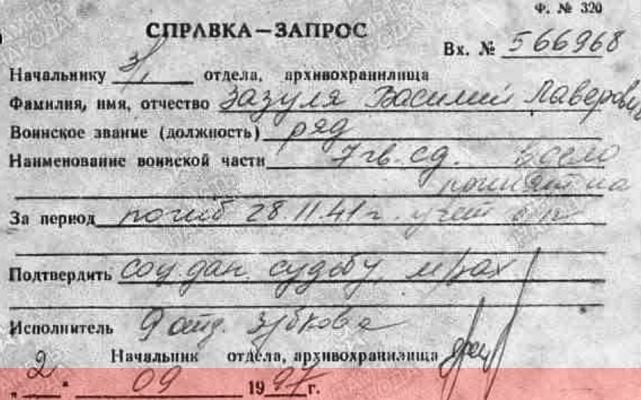 Ф. № 320
СПРАВКА—ЗАПРОС
Вх. № 566968
Начальнику 3/1 отдела, архивохранилища
Фамилия, имя, отчество Зазуля Василий Лаверович
Воинское звание (должность) ряд
Наименование воинской части 7 гв. сд.
За период погиб 28.11.41 г.
Подтвердить соц. дан. судьбу, м/зах
Исполнитель 9 отд. Зубкова
Начальник отдела, архивохранилища
„2" 09 1997 г.